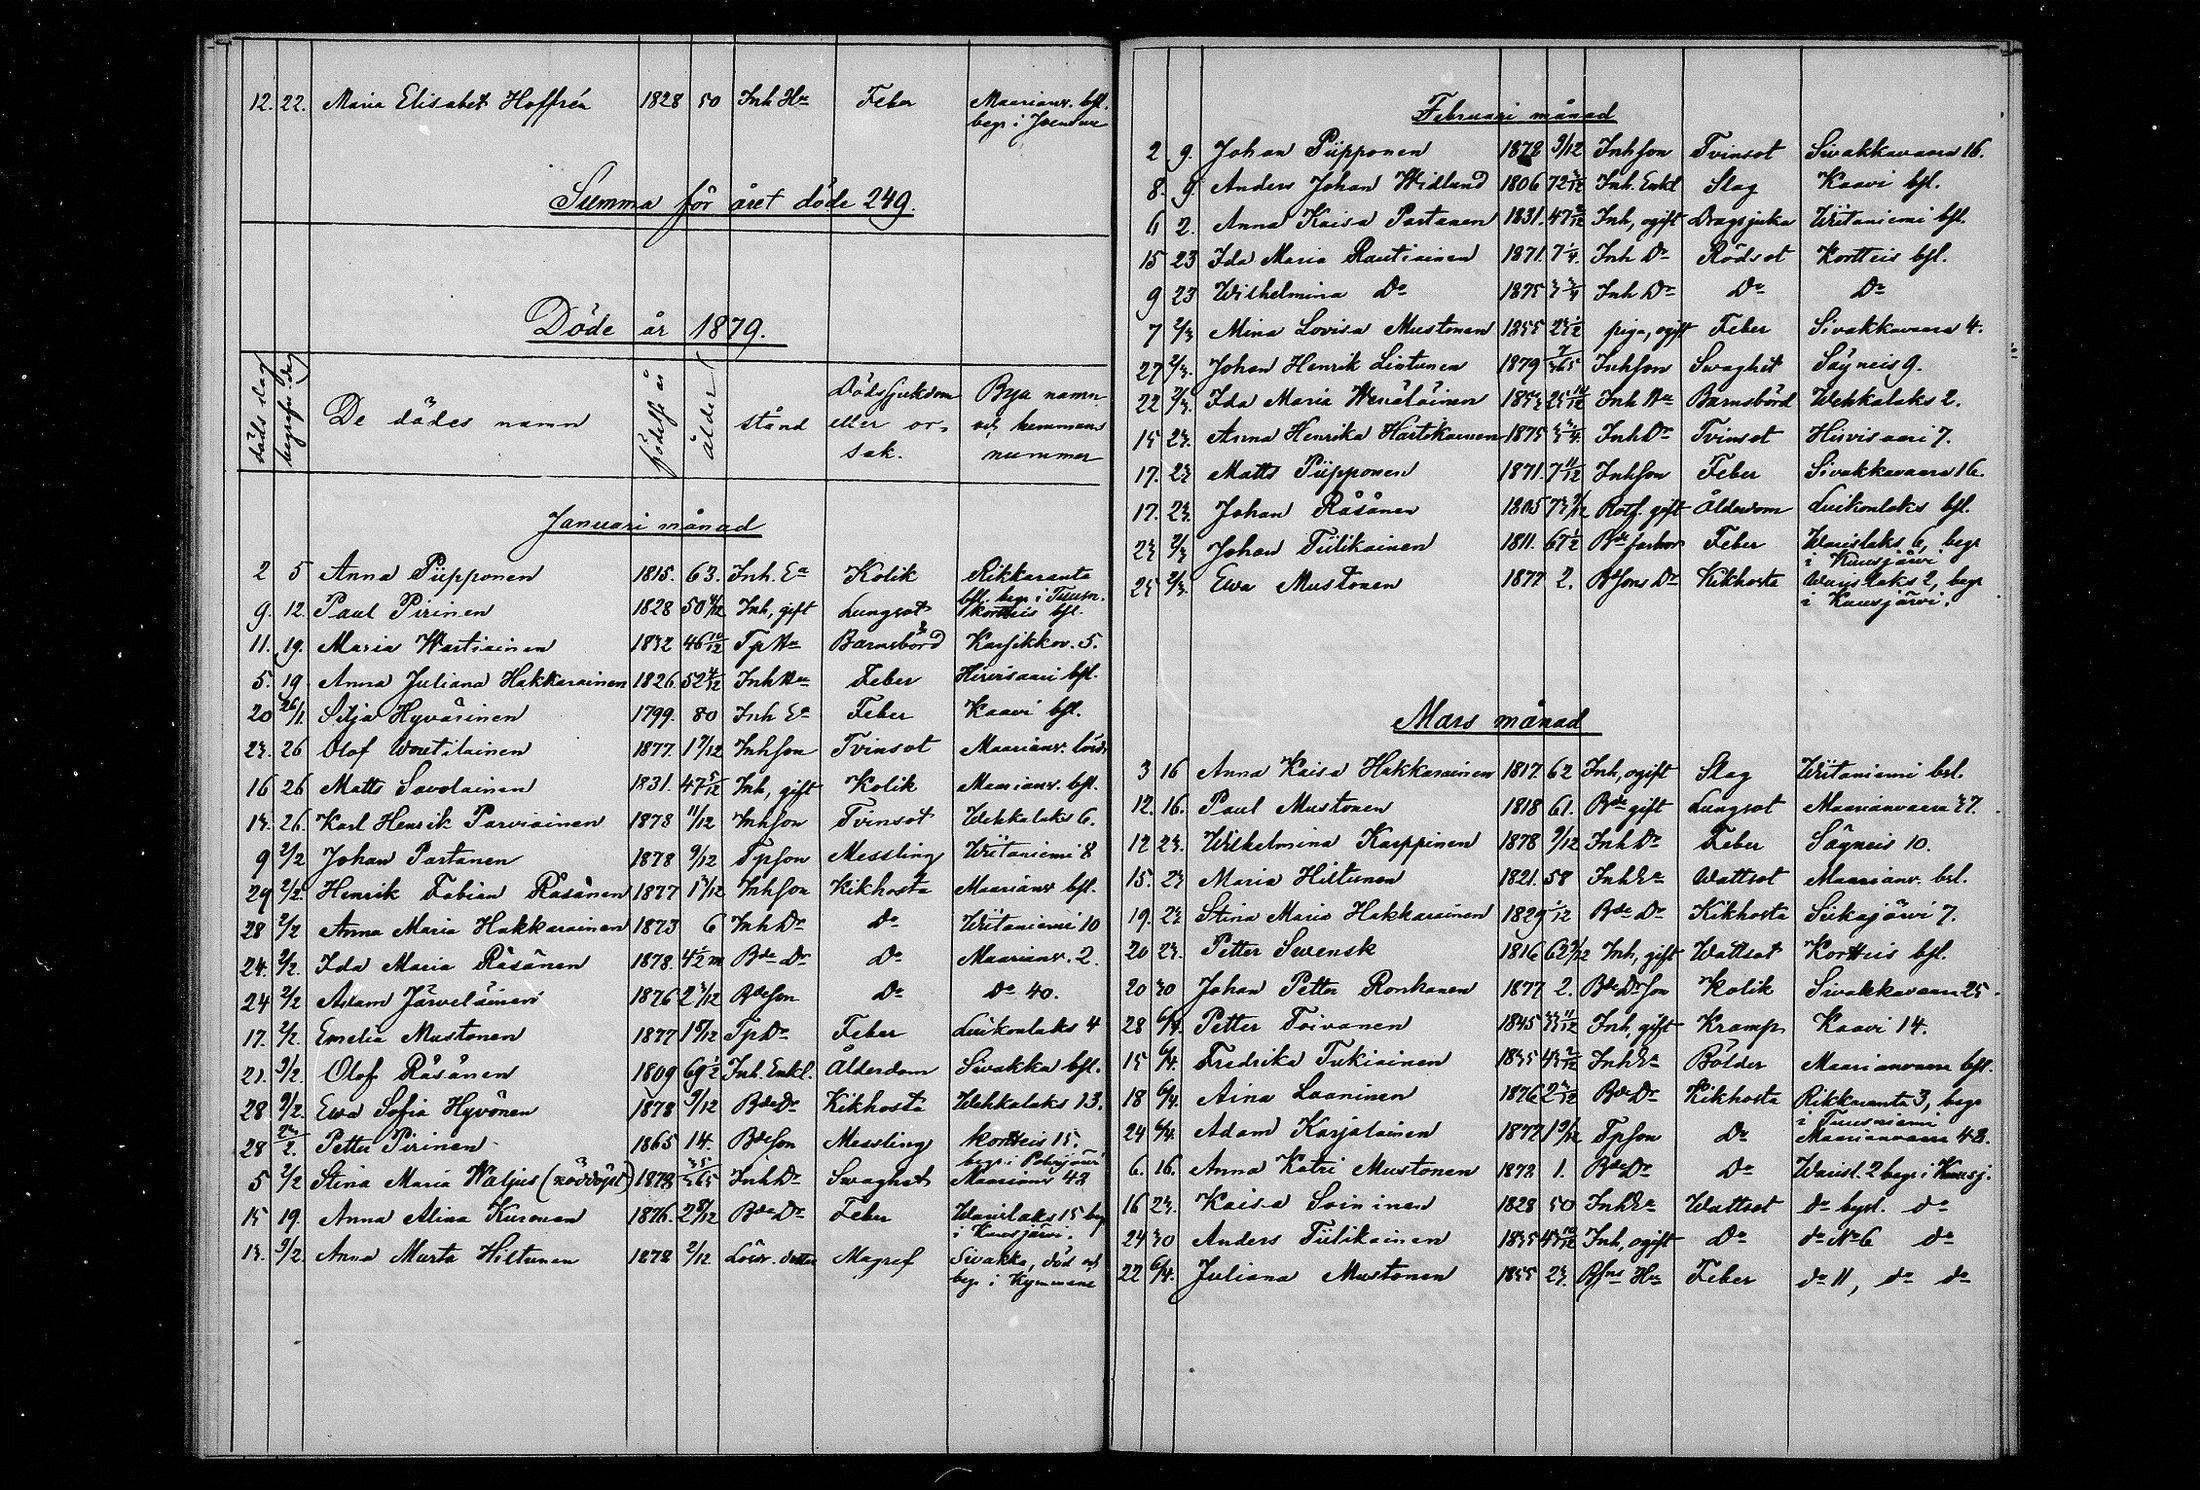 12. 22. Maria Elisabet Hoffrén 1828 50 Inh Hu Feber Maarianv. bfl.
begr i
Summa för året döde 249.
Döde år 1879.
döds dag begrafn: dag De dödes namn födelse år ålder stånd Dödssjukdom eller orsak. Bya namn och hemmans nummer
Januari månad
2 5 Anna Piipponen 1815. 63. Inh. Ea Kolik Rikkaranta
bfl. begr i Tuusn.
9. 12. Paul Pirinen 1828 50 Inh, gift Lungsot Kortteis bfl.
11. 19. Maria Wartiainen 1832 46 10/12 Tp Hu Barnsbörd Karsikkov. 5.
5. 19. Anna Juliana Hakkarainen 1826. 52 Inh Hu Feber Hirvisaari bfl.
20 26/1. Silja Hyvärinen 1799. 80 Inh Ea Feber Kaavi bfl.
23. 26 Olof Woutilainen 1877. 1 Inhson Tvinsot Maarianv.
16 26 Matts Savolainen 1831. 47 5/12 Inh, gift Kolik Maarianv. bfl.
13. 26. Karl Henrik Parviainen 1878 11/12 Inhson Tvinsot Wehkalaks 6.
9 2/2 Johan Partanen 1878 9/12 Tpson Messling Wiitaniemi 8
29 2/2. Henrik Fabian Räsänen 1877 Inhson Kikhosta Maarianv bfl.
28 2/2 Anna Maria Hakkarainen 1873 6 Inh Dr Do Wiitaniemi 10
24. 2/2. Ida Maria Räsänen 1878. 4 1/2 m Bde Dr Do Maarianv. 2.
24 2/2 Adam Järveläinen 1876 2 Bdeson Do Do 40.
17. 2/2. Emelia Mustonen 1877 Tp Dr Feber Luikonlaks 4
21. 9/2. Olof Räsänen 1809 69 1/2 Inh. Enkl. Ålderdom Sivakka bfl.
28 9/2. Ewa Sofia Hyvönen 1878 9/12 Bde Dr Kikhosta Wehkalaks 13.
28 23/2. Petter Pirinen 1865 14. Bdeson Messling Kortteis 15.
begr i Polvijärvi
5 2/2 Stina Maria Waljus (nöddöpt) 1878 35/365 Inh Dr Svaghet Maarianv 42
15 19. Anna Alina Kuronen 1876. 2 Bde Dr Feber Warislaks 15 begr
i Kuusjärvi.
13. 9/2. Anna Marta Hiltunen 1878 2/12 Lösdr. dotter Magref Sivakka, död och
begr i
Februari månad
2 9. Johan Piipponen 1878 9/12 Inhson Tvinsot Sivakkavaara 16.
8. 9 Anders Johan Widlund 1806 72 Inh. Enkl Slag Kaavi bfl.
6 2. Anna Kaisa Partanen 1831. 47 Inh, ogift Dragsjuka Wiitaniemi bfl.
15 23 Ida Maria Rautiainen 1871. 7 1/4. Inh Dr Rödsot Kortteis bfl.
9 23 Wilhelmina Do 1875 3 3/4 Inh Dr Do Do
7 2/3 Mina Lovisa Mustonen 1855 23 piga, ogift Feber Sivakkavaara 4.
27 2/3. Johan Henrik 1879 7/365 Inhson Svaghet Säyneis 9.
22 2/3. Ida Maria Wenäläinen 1853 25 Inh Hu Barnsbörd Wehkalaks 2.
15 23. Anna Henrika Hartikainen 1875 3 3/4. Inh Dr Tvinsot Hirvisaari 7.
17. 23 Matts Piipponen 1871. 7 11/12 Inhson Feber Sivakkavaara 16.
17. 23. Johan Räsänen 1805 73 Rotf. gift Ålderdom Luikonlaks bfl.
23 2/3 Johan Tiilikainen 1811. 67 1/2 Bde farbror Feber Warislaks 6, begr
i Kuusjärvi
25 2/3. Ewa Mustonen 1877 2. Bdsons Dr Kikhosta Warislaks 2, begr
i Kuusjärvi.
Mars månad
3 16 Anna Kaisa Hakkarainen 1817. 62 Inh, ogift Slag Wiitaniemi bsl.
12. 16. Paul Mustonen 1818 61. Bde gift Lungsot Maarianvaara 37.
12 23. Wilhelmina Karppinen 1878 9/12 Inh Dr Feber Säyneis 10.
15. 23 Maria Hiltunen 1821. 58 Inh Ea Wattsot Maarianv. bsl.
19. 23 Stina Maria Hakkarainen 1829 1/12 Bde Dr Kikhosta Siikajärvi 7.
20 23. Petter Swensk 1816 62 Inh, gift Wattsot Kortteis bfl.
20 30 Johan Petter Ronkanen 1877 2. Bde Dr son Kolik Sivakkavaara 25.
28 6/4. Petter Toivanen 1845 33 11/12 Inh, gift Kramp Kaavi 14.
15 6/4. Fredrika Tukiainen 1835 43 Inh Ea Bölder Maarianvaara bfl.
18 6/4. Aina Laaninen 1876 2 Bde Dr Kikhosta Rikkaranta 3, begr
i Tuusniemi
24 6/4. Adam Karjalainen 1877 1 Tpson Do Maarianvaara 42.
6. 16. Anna Katri Mustonen 1878 1. Bde Dr Do Warisl. 2 begr i Kuusj.
16 23. Kaisa Soininen 1828 50 Inh Ea Wattsot do bysl. do
24 30 Anders Tiilikainen 1835 43 10/12 Inh, ogift Do do No 6 do
22 6/4. Juliana Mustonen 1855 23. Bsns Hu Feber do 11, do do